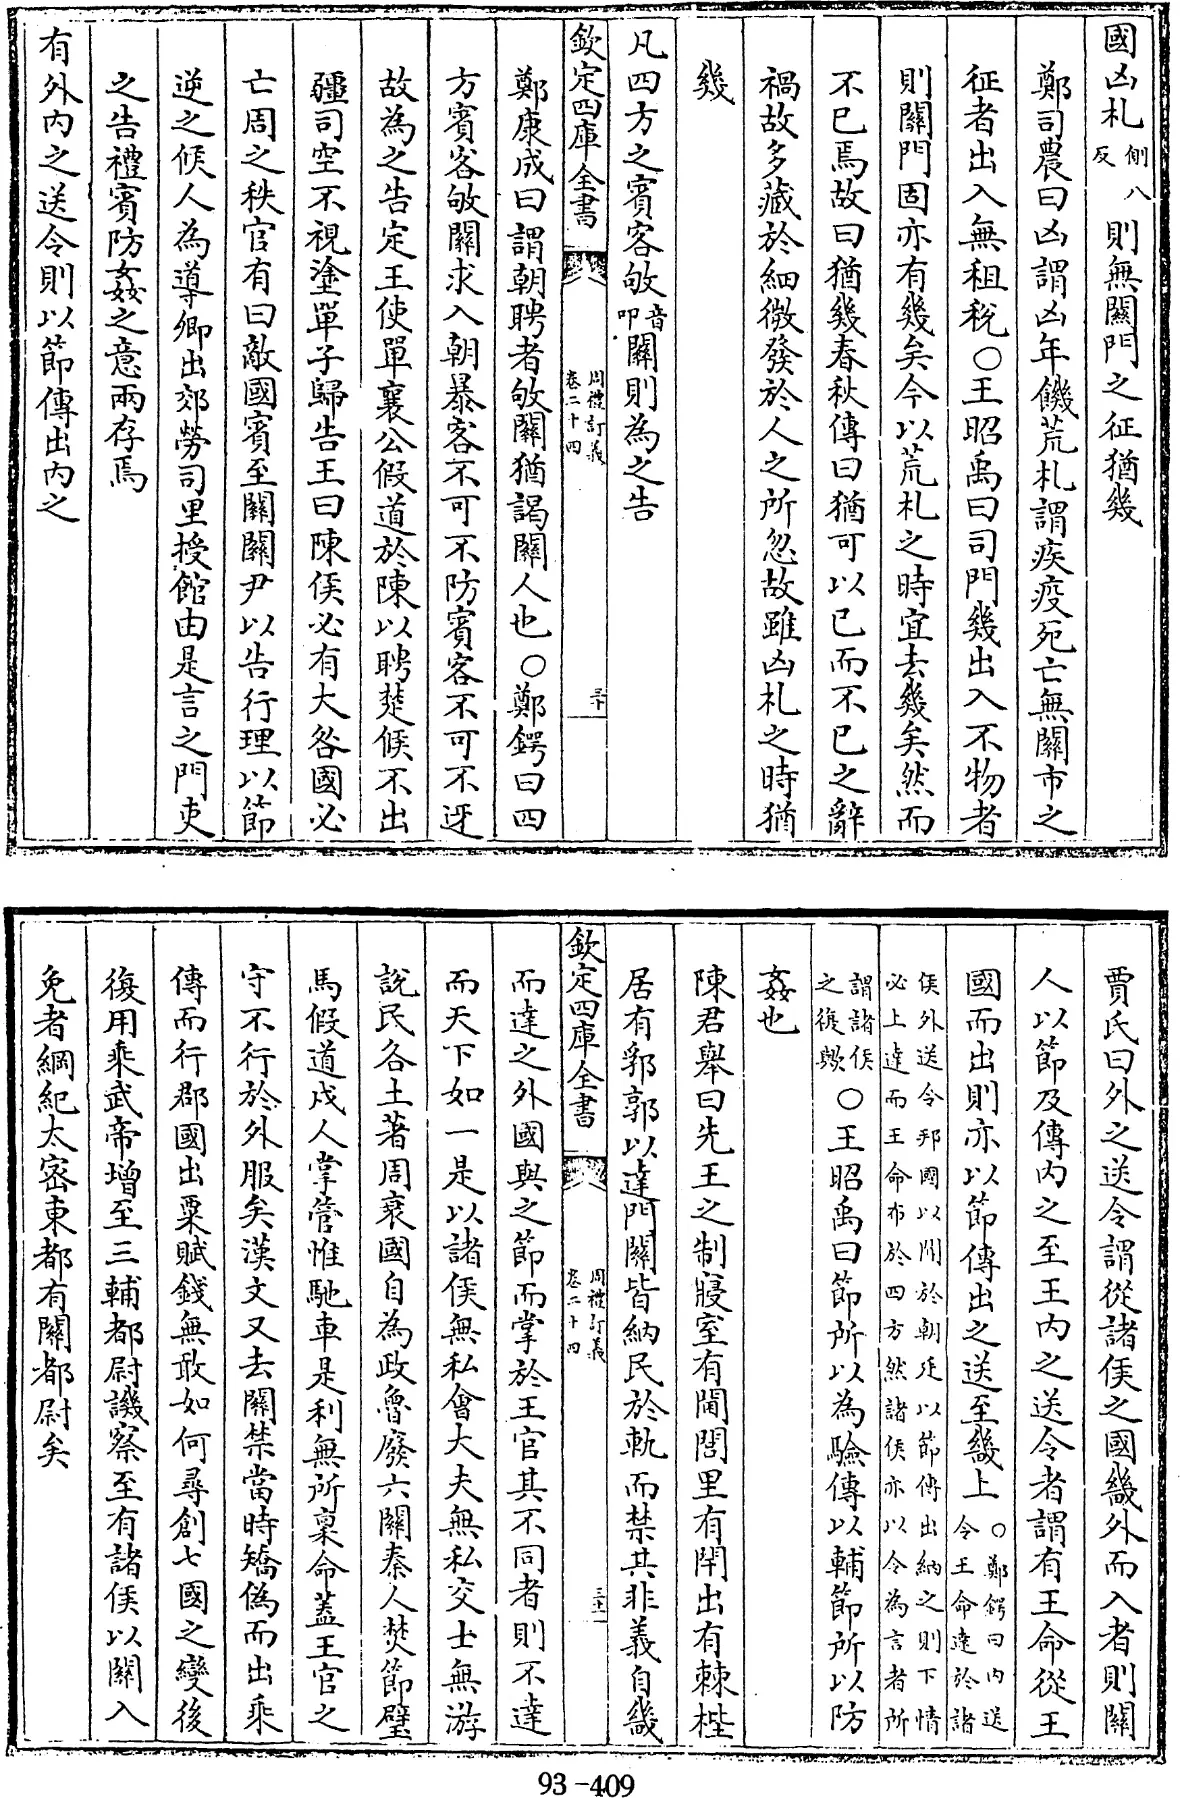 國凶札側八反則無關門之征猶幾
鄭司農曰凶謂凶年饑荒札謂疾疫死亡無關市之
征者出入無租稅○王昭禹曰司門幾出入不物者
則關門固亦有幾矣今以荒札之時宜去幾矣然而
不已焉故曰猶幾春秋傳曰猶可以已而不已之辭
禍故多藏於細微發於人之所忽故雖凶札之時猶
幾
凡四方之賓客敂音叩關則為之告
欽定四庫全書
周禮訂義
卷二十四
三十
鄭康成曰謂朝聘者敂關猶謁關人也○鄭鍔曰四
方賓客敂關求入朝暴客不可不防賓客不可不迓
故為之告定王使單襄公假道於陳以聘楚候不出
疆司空不視塗單子歸告王曰陳侯必有大咎國必
亡周之秩官有曰敵國賓至關關尹以告行理以節
逆之候人為導卿出郊勞司里授館由是言之門吏
之告禮賓防姦之意兩存焉
有外內之送令則以節傳出內之
賈氏曰外之送令謂從諸侯之國畿外而入者則關
人以節及傳內之至王內之送令者謂有王命從王
國而出則亦以節傳出之送至畿上○鄭鍔曰內送
令王命達於諸
侯外送令邦國以聞於朝廷以節傳出納之則下情
必上達而王命布於四方然諸侯亦以令為言者所
謂諸侯
之復歟○王昭禹曰節所以為驗傳以輔節所以防
姦也
陳君舉曰先王之制寢室有閫閤里有閈出有棘桎
居有郛郭以達門關皆納民於軌而禁其非義自畿
欽定四庫全書
周禮訂義
卷二十四
三十一
而達之外國與之節而掌於王官其不同者則不達
而天下如一是以諸侯無私會大夫無私交士無游
說民各土著周衰國自為政魯廢六關秦人焚節璧
馬假道戍人掌管惟馳車是利無所稟命蓋王官之
守不行於外服矣漢文又去關禁當時矯偽而出乘
傳而行郡國出粟賦錢無敢如何尋創七國之變後
復用乘武帝增至三輔都尉譏察至有諸侯以關入
免者綱紀太密東都有關都尉矣
93-409